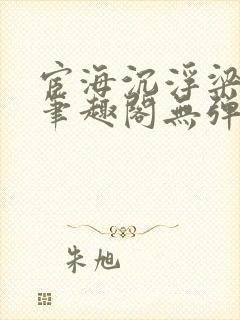 宦海沉浮梁
笔趣阁無弹
朱旭